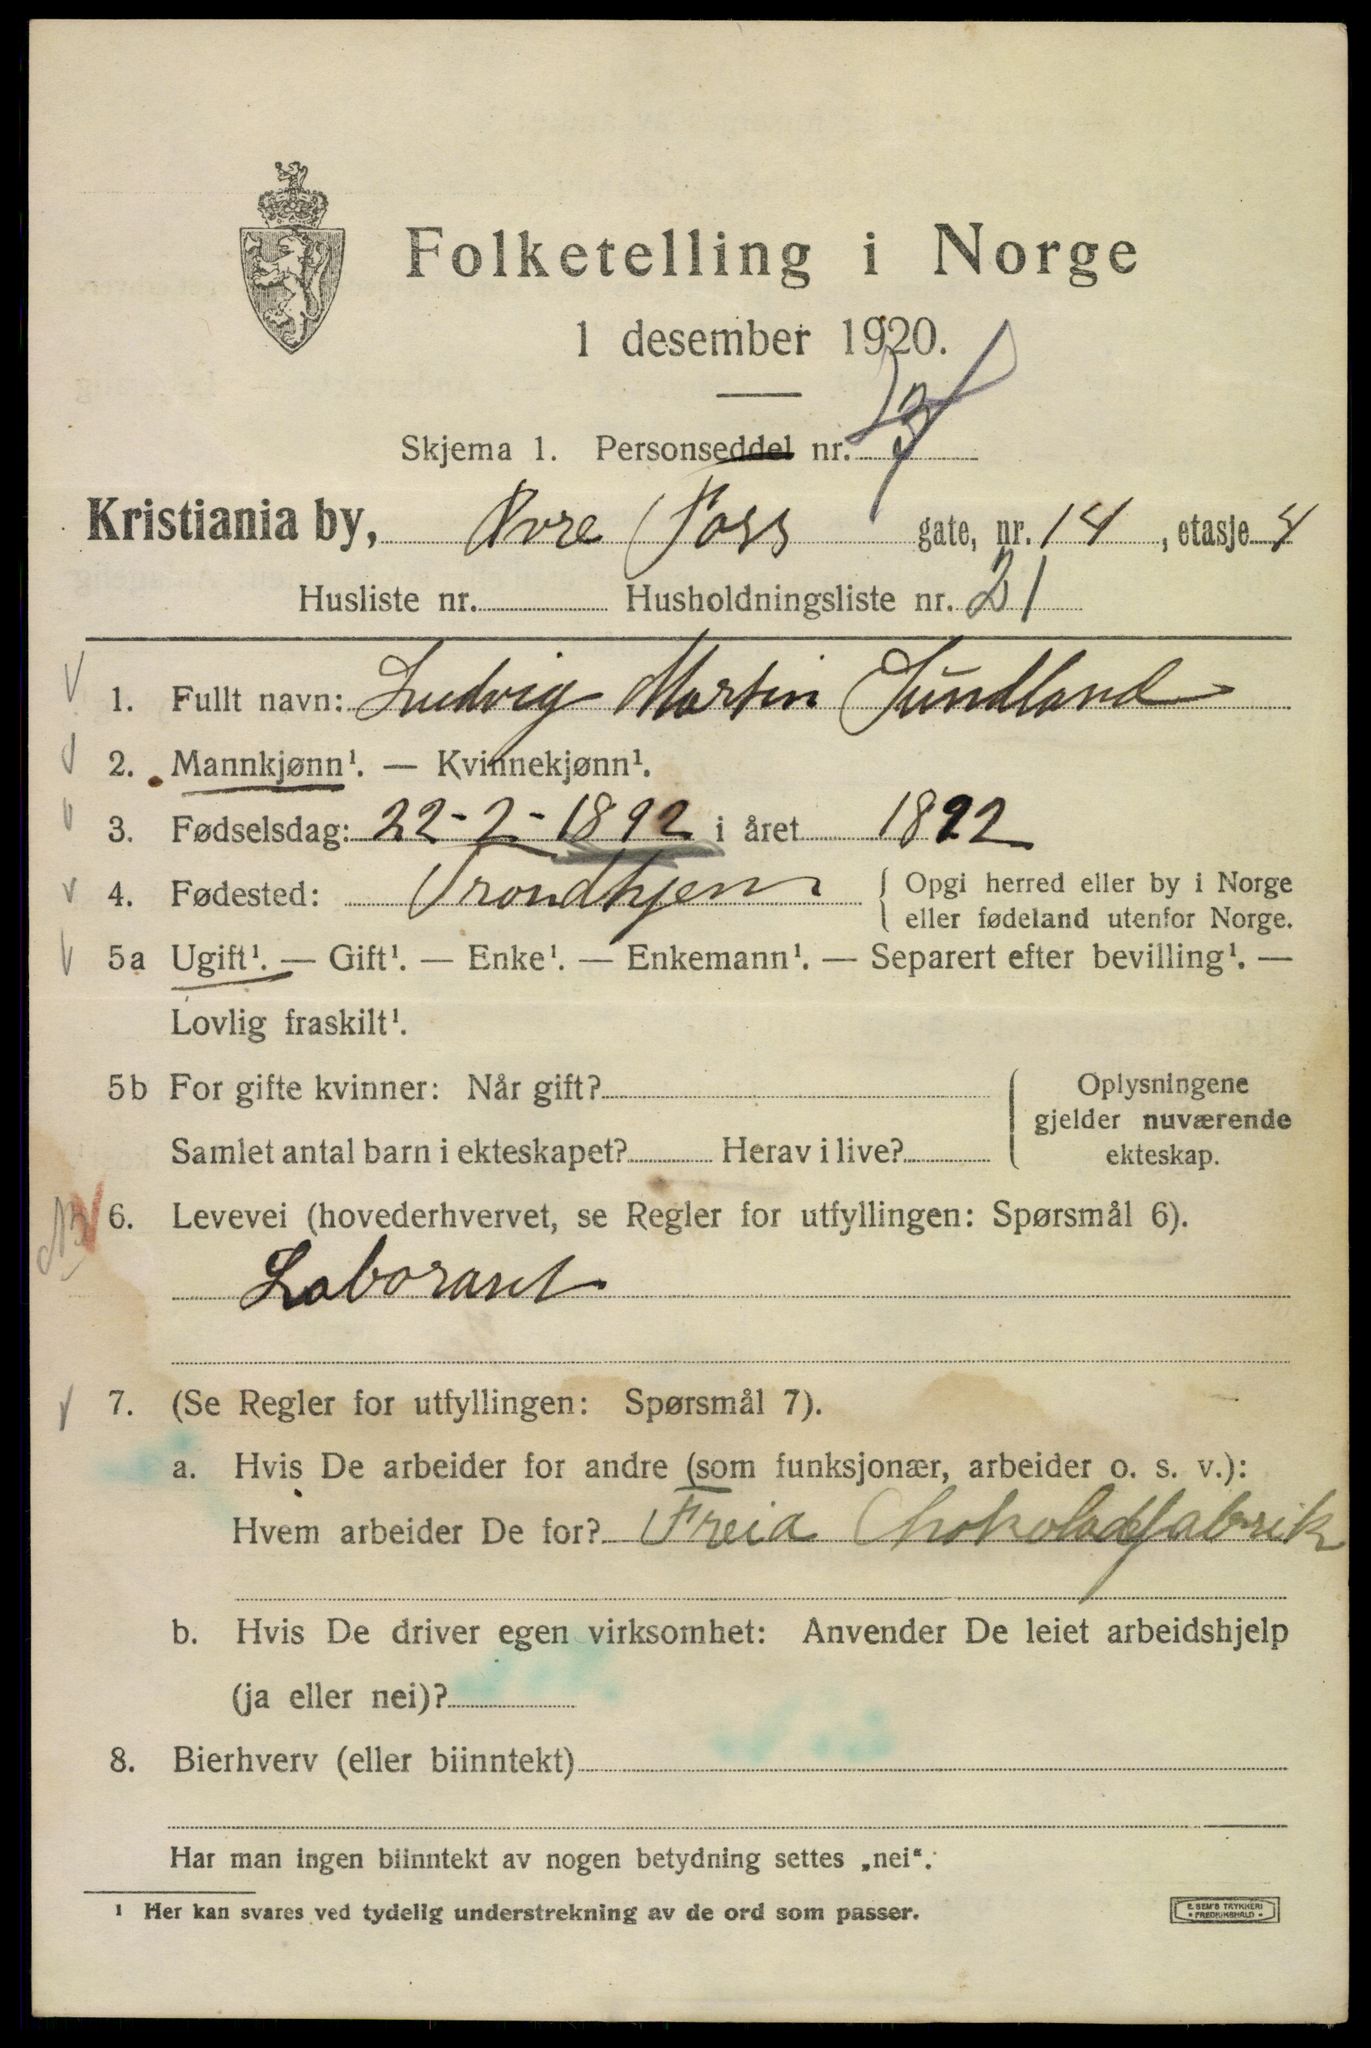 Folketelling i Norge
1 desember 1920.
Skjema 1. Personseddel nr.
Kristiania by, Øvre Foss gate, nr. 14, etasje 4
Husliste nr. Husholdningsliste nr. 21
1. Fullt navn: Ludvig Martin Sundland
2. Mannkjønn¹. — Kvinnekjønn¹.
3. Fødselsdag: 22-2-1892 i året 1892
4. Fødested: Trondhjem { Opgi herred eller by i Norge
eller fødeland utenfor Norge.
5a Ugift¹. — Gift¹. — Enke¹. — Enkemann¹. — Separert efter bevilling¹. —
Lovlig fraskilt¹.
5b For gifte kvinner: Når gift?
Samlet antal barn i ekteskapet? Herav i live?
{ Oplysningene
gjelder nuværende
ekteskap.
6. Levevei (hovederhvervet, se Regler for utfyllingen: Spørsmål 6).
Laborant
7. (Se Regler for utfyllingen: Spørsmål 7).
a. Hvis De arbeider for andre (som funksjonær, arbeider o. s. v.):
Hvem arbeider De for? Freia Chokoladefabrik
b. Hvis De driver egen virksomhet: Anvender De leiet arbeidshjelp
(ja eller nei)?
8. Bierhverv (eller biinntekt)
Har man ingen biinntekt av nogen betydning settes „nei“.
¹ Her kan svares ved tydelig understrekning av de ord som passer.
E. SEM'S TRYKKERI
• FREDRIKSHALD •